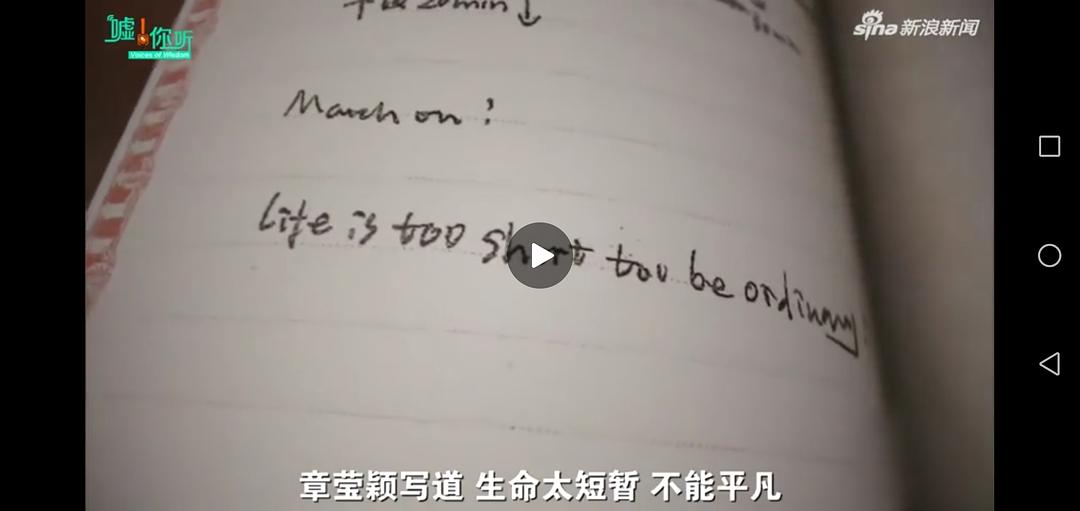 嘘!你听
Voices of Wisdom
sina新浪新闻
20min↓
March on !
Life is too short too be ordinary
章莹颖写道 生命太短暂 不能平凡